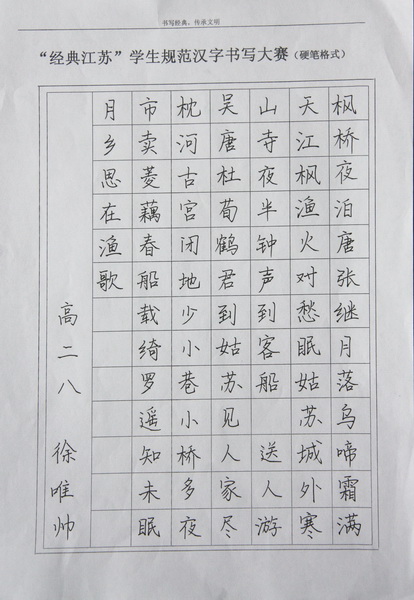 书写经典，传承文明
“经典江苏”学生规范汉字书写大赛（硬笔格式）
枫桥夜泊唐张继月落乌啼霜满
天江枫渔火对愁眠姑苏城外寒
山寺夜半钟声到客船 送人游
吴唐杜荀鹤君到姑苏见人家尽
枕河古宫闭地少小巷小桥多夜
市卖菱藕春船载绮罗遥知未眠
月乡思在渔歌
高二八 徐唯帅